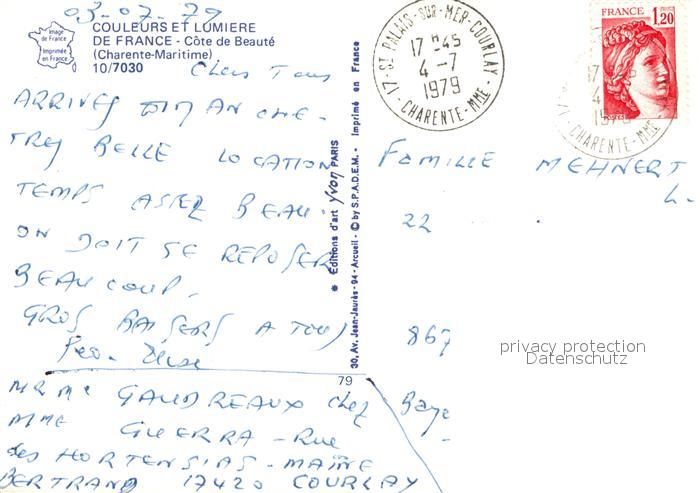 03-07-79
Image de France
Imprimée en France
COULEURS ET LUMIERE
DE FRANCE - Côte de Beauté
(Charente-Maritime)
10/7030
Chers Tous
ARRIVES DIMANCHE-
TRES BELLE LOCATION
TEMPS ASSEZ BEAU.
ON DOIT SE REPOSER
BEAUCOUP.
GROS BAISERS A TOUS
MR Me GAUDREAUX chez
MME GUERRA - Rue
des HORTENSIAS - MAINE
BERTRAND 17420 COURLAY
* Editions d'art yvon PARIS
30, Av. Jean-Jaurès - 94 - Arcueil - © by S.P.A.D.E.M. - Imprimé en France
79
17 - ST PALAIS-SUR-MER-COURLAY
17 H 45
4 - 7
1979
CHARENTE-MME
FRANCE 1,20
17
4
1979
17 - CHARENTE-MME
FAMILLE MEHNERT
L.
22
867
privacy protection
Datenschutz